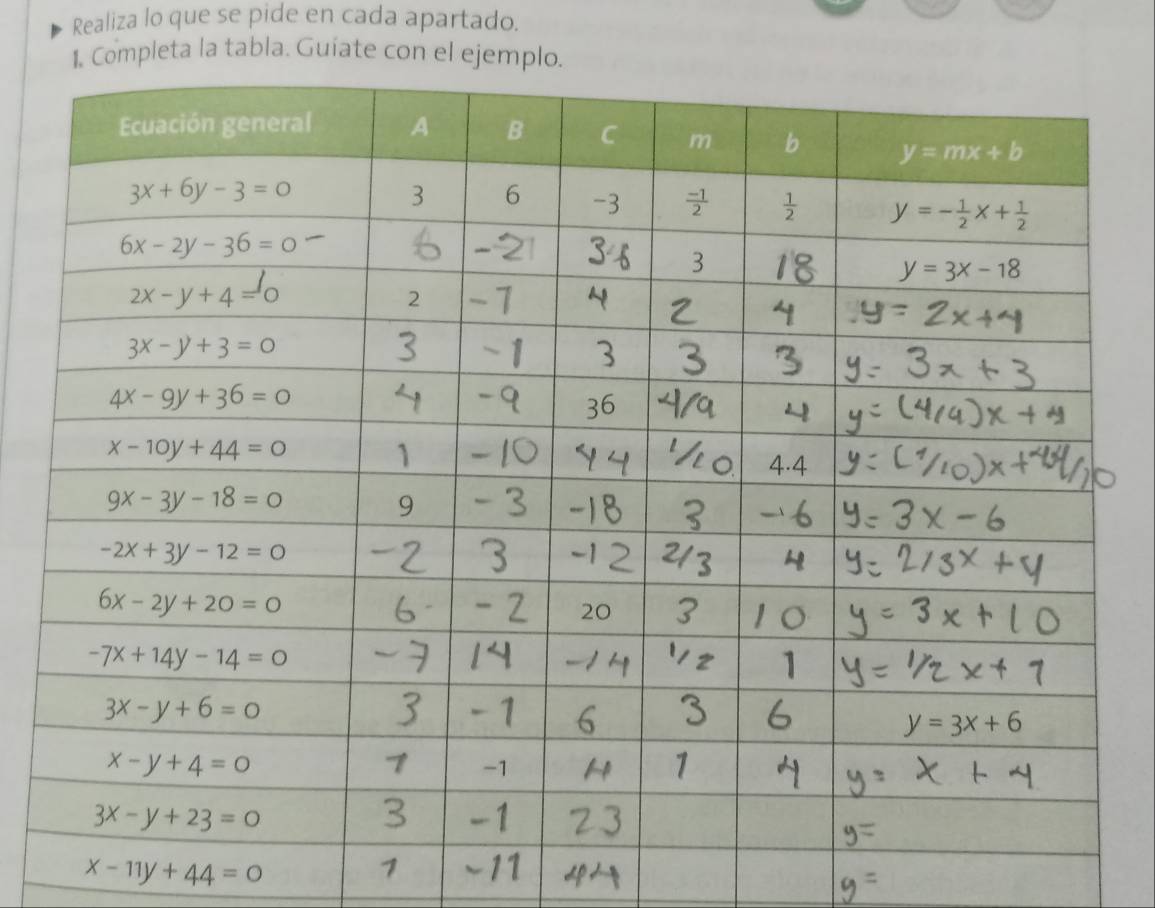 ▶ Realiza lo que se pide en cada apartado.
1. Completa la tabla. Guíate con el ejemplo.
Ecuación general A B C m b y = mx + b
3x + 6y - 3 = 0 3 6 -3 -1/2 1/2 y = -1/2 x + 1/2
6x - 2y - 36 = 0 - 6 -2 36 3 18 y = 3x - 18
2x - y + 4 = 0 2 -1 4 2 4 y = 2x + 4
3x - y + 3 = 0 3 -1 3 3 3 y = 3x + 3
4x - 9y + 36 = 0 4 -9 36 4/9 4 y = (4/9)x + 4
x - 10y + 44 = 0 1 -10 44 1/10 4.4 y = (1/10)x + 44/10
9x - 3y - 18 = 0 9 -3 -18 3 -6 y = 3x - 6
-2x + 3y - 12 = 0 -2 3 -12 2/3 4 y = 2/3x + 4
6x - 2y + 20 = 0 6 -2 20 3 10 y = 3x + 10
-7x + 14y - 14 = 0 -7 14 -14 1/2 1 y = 1/2x + 1
3x - y + 6 = 0 3 -1 6 3 6 y = 3x + 6
x - y + 4 = 0 1 -1 4 1 4 y = x + 4
3x - y + 23 = 0 3 -1 23 y =
x - 11y + 44 = 0 1 -11 44 y =